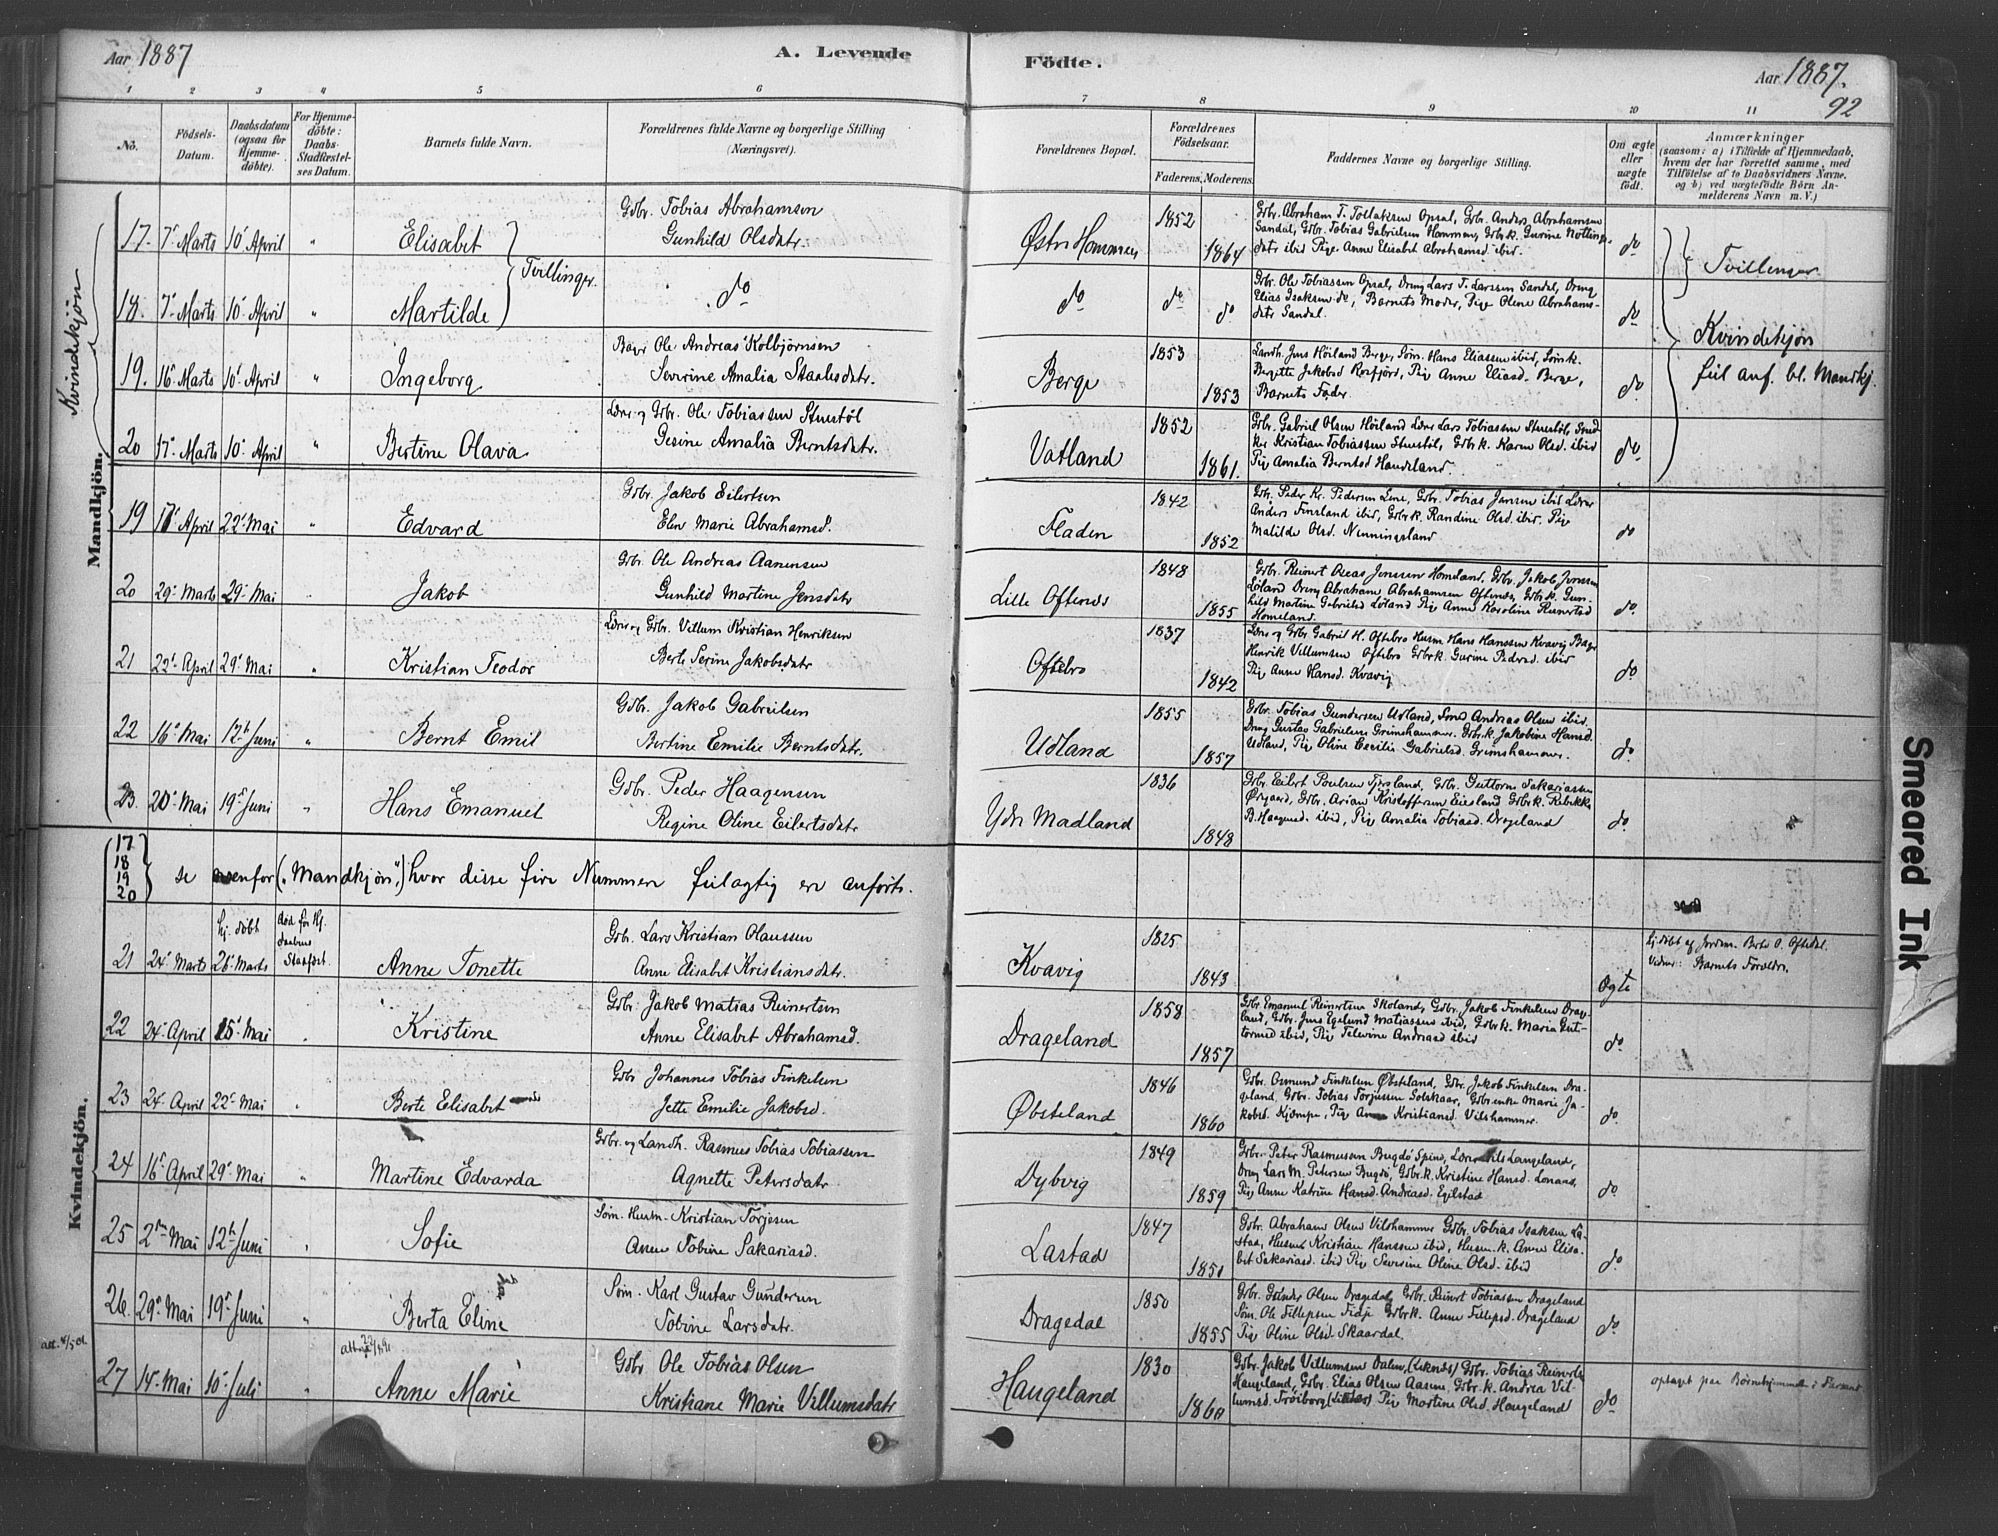 Aar 1887
A. Levende
Födte.
Aar 1887.
92
1 2 3 4 5 6 7 8 9 10 11
No.
Födsels-
Datum.
Daabsdatum
(ogsaa for
Hjemme-
döbte).
For Hjemme-
döbte:
Daabs-
Stadfæstel-
ses Datum.
Barnets fulde Navn.
Forældrenes fulde Navne og borgerlige Stilling
(Næringsvei).
Forældrenes Bopæl.
Forældrenes
Födselsaar.
Faderens. Moderens.
Faddernes Navne og borgerlige Stilling.
Om ægte
eller
uægte
födt.
Anmærkninger
(saasom: a) i Tilfælde af Hjemmedaab,
hvem der har forrettet samme, med
Tilföielse af to Daabsvidners Navne.
og b) ved uægtefödte Börn An-
melderens Navn m. V.)
Kvindekjön
Mandkjön.
17. 7. Marts 10. April " Elisabet
Gbr. Tobias Abrahamsen
Gunhild Olsdatr.
Østre Hommen 1852 1864
Gbr. Abraham T. Tollaksen Opsal, Gbr. Anders Abrahamsen
Sandal, Gbr. Tobias Gabrielsen Hommen, Gbrk. Gurine
datr ibid Pige Anne Elisabet Abrahamsd. ibid.
do
Tvillinger.
Tvillinger
18. 7. Marts 10. April " Martilde
do
do do do
Gbr. Ole Tobiassen Opsal, Dreng Lars T. Larssen Sandal, Dreng
Elias Isaksen do, Barnets Moder, Pige Oline Abrahams-
datr Sandal.
do
Kvindekjön
feil anf. bl. Mandkj.
19. 16. Marts 10. April " Ingeborg
Ole Andreas Kolbjörnsen
Severine Amalia Staalesdatr.
Berge 1853 1853
Landh. Jens Höiland Berge, Söm. Hans Eliassen ibid, Sömk.
Birgitte Jakobsd Rosfjord, Pige Anne Eliasd. Berge,
Barnets Fader
do
20 17. Marts 10. April " Bertine Olava
Lærer og Gbr. Ole Tobiassen Stuestöl
Gesine Amalia Berntsdatr.
Vatland 1852 1861.
Gbr. Gabriel Olsen Höiland Lærer Lars Tobiassen Stuestöl,
Kristian Tobiassen Stuestöl, Gbrk. Karen Olsd. ibid
Pige Amalia Berntsd Haugeland.
do
19 17. April 22. Mai " Edvard
Gbr. Jakob Eilertsen
Elen Marie Abrahamsd.
Fladen 1842 1852
Gbr. Peder Kr. Pedersen Lene, Gbr. Tobias Jensen ibid Lærer
Anders Finsland ibid, Gbrk. Randine Olsd. ibid. Pige
Matilde Olsd. Nenningsland
do
20 29. Marts 29. Mai Jakob
Gbr. Ole Andreas Aanensen
Gunhild Martine Jensdatr
Lille Oftenes 1848 1855
Gbr. Reinert Oseas Jenssen Homeland, Gbr. Jakob Jenssen
Löland Dreng Abraham Abrahamsen Oftenes, Gbrk. Gun-
hild Martine Gabrielsd Löland Pige Anne Karoline Reinertsd
Homeland.
do.
21 22. April 29. Mai " Kristian Teodor
Lærer og Gbr. Villum Kristian Henriksen
Berte Serine Jakobsdatr
Oftebro 1837 1842
Lærer og Gbr Gabriel H. Oftebro Husm Hans Hanssen Kvavig
Henrik Villumsen Oftebro Gbrk. Gurine Pedersd. ibid
Pige Anne Hansd. Kvavig
do
22 16. Mai 12. Juni " Bernt Emil
Gbr. Jakob Gabrielsen
Bertine Emilie Berntsdatr.
Udland 1855 1857
Gbr. Tobias Gundersen Udland, Andreas Olsen ibid.
Dreng Gustav Gabrielsen Grimshammer. Gbrk. Jakobine Hansd.
Udland, Pige Oline Cecilie Gabrielsd. Grimshammer.
do
23. 20. Mai 19. Juni " Hans Emanuel
Gbr. Peder Haagensen
Regine Oline Eilertsdatr
Ydre Madland 1836 1848
Gbr. Eilert Poulsen Tjersland, Gbr. Guttorm Sakariassen
Gbr. Arian Kristoffersen Eiesland Gbrk. Rebekke
B. Haagensd. ibid, Pige Amalia Tobiasd. Drageland
do
17
18
19
20
se ovenfor („Mandkjön") hvor disse fire Nummere feilagtig ere anförte.
Kvindekjön.
21 24. Marts hj. döbt 26. Marts död för Hj. daabens Stadfæst.
Anne Tonette
Gbr. Lars Kristian Olaussen
Anne Elisabet Kristiansdatr.
Kvavig 1825 1843
Ægte
hj. döbt af Jordm. Berte O. Oftedal.
Vidner: Barnets Forældre.
22 24. April 15. Mai " Kristine
Gbr. Jakob Matias Reinertsen
Anne Elisabet Abrahamsd.
Drageland 1858 1857
Gbr. Emanuel Reinertsen Skoland, Gbr. Jakob Finkelsen Drage-
land, Gbr. Jens Egelund Matiassen ibid, Gbrk. Maria Gut-
tormsd ibid, Pige Televine Andreasd ibid
do.
23 24. April 22. Mai " Berte Elisabet
Gbr Johannes Tobias Finkelsen
Jette Emilie Jakobsd.
Öbsteland 1846 1860
Gbr. Osmund Finkelsen Öbsteland, Gbr. Jakob Finkelsen Dra-
geland, Gbr. Tobias Torjussen Solskaar, Gbr.enke Marie Ja-
kobsd. Kjæmpe, Pige Anne Kristiansd. Vilshammer.
do.
24 16. April 29. Mai " Martine Edvarda
Gbr. og Landh. Rasmus Tobias Tobiassen
Agnette Petersdatr.
Dybvig 1849 1859
Gbr. Peter Rasmussen Bugdö Spind, Lærer Nils Langeland,
Dreng Lars M. Petersen Bugdö, Gbrk. Kristine Hansd. Lonaas,
Pige Anne Katrine Hansd. Andreasd. Egilstad
do.
25 2. Mai 12. Juni " Sofie
Söm. Husm. Kristian Torjesen
Anne Tobine Sakariasd.
Lastad 1847 1851
Gbr. Abraham Olsen Vilshammer Gbr. Tobias Isaksen La-
stad, Husm. Kristian Hanssen ibid, Husm.k. Anne Elisa-
bet Sakariasd. ibid Pige Severine Oline Olsd. ibid
do.
26. 29. Mai 19. Juni " Berta Eline
Söm. Karl Gustav Gundersen
Tobine Larsdatr.
Dragedal 1850 1855
Gbr. Gunder Olsen Dragedal, Gbr. Reinert Tobiassen Drageland
Söm. Ole Fillepsen Fidje Gbrk. Anne Fillepsd. Drageland
Pige Oline Olsd. Skaardal.
do.
att. 4/5 d.
27 14. Mai 10. Juli " Anne Marie
Gbr. Ole Tobias Olsen
Kristiane Marie Villumsdatr
Haugeland 1830 1860
Gbr. Jakob Villumsen Dalen, (Liknes) Gbr. Tobias Reinertsen
Haugeland, Gbr. Elias Olsen Aasen, Gbr.k. Andrea Vil-
lumsd. Tröiborg (Liknes) Pige Martine Olsd. Haugeland
do.
optaget paa Börnehjemmet i Farsund
Smeared Ink